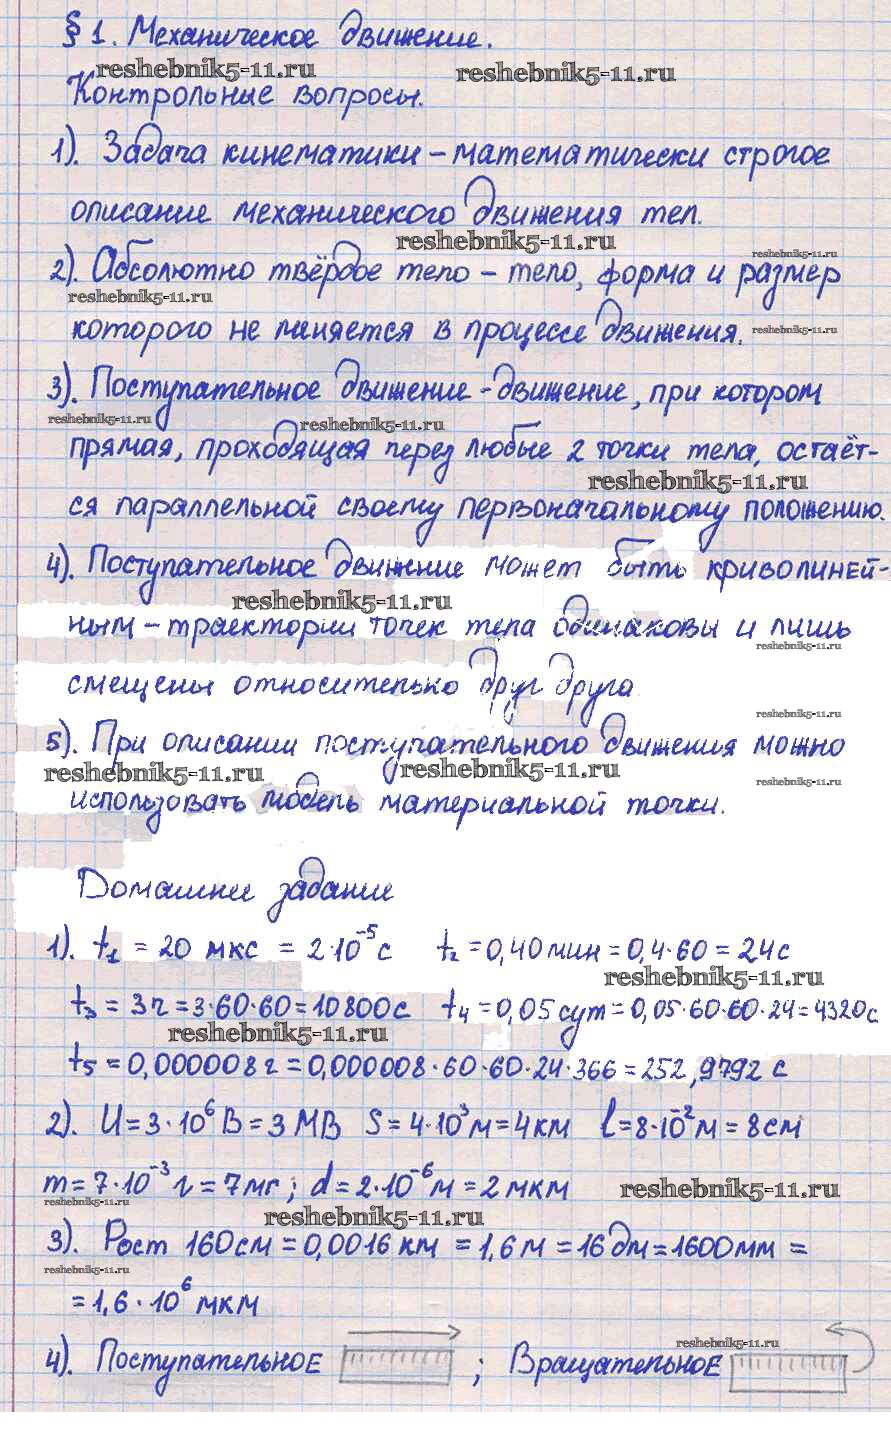 § 1. Механическое движение.
reshebnik5-11.ru reshebnik5-11.ru
Контрольные вопросы.
1). Задача кинематики – математически строгое
описание механического движения тел.
reshebnik5-11.ru
reshebnik5-11.ru
2). Абсолютно твёрдое тело – тело, форма и размер
reshebnik5-11.ru
которого не меняется в процессе движения.
reshebnik5-11.ru
3). Поступательное движение - движение, при котором
reshebnik5-11.ru reshebnik5-11.ru
прямая, проходящая через любые 2 точки тела, остаёт-
reshebnik5-11.ru
ся параллельной своему первоначальному положению.
4). Поступательное движение может быть криволиней-
reshebnik5-11.ru
ным – траектории точек тела одинаковы и лишь
reshebnik5-11.ru
смещены относительно друг друга.
reshebnik5-11.ru
5). При описании поступательного движения можно
reshebnik5-11.ru reshebnik5-11.ru reshebnik5-11.ru
использовать модель материальной точки.
Домашнее задание
1). t₁ = 20 мкс = 2·10⁻⁵ с t₂ = 0,40 мин = 0,4·60 = 24 с
reshebnik5-11.ru
t₃ = 3 ч = 3·60·60 = 10800 с t₄ = 0,05 сут = 0,05·60·60·24 = 4320 с
reshebnik5-11.ru
t₅ = 0,000008 г = 0,000008·60·60·24·366 = 252,9792 с
2). U = 3·10⁶ В = 3 МВ S = 4·10³ м = 4 км l = 8·10⁻² м = 8 см
m = 7·10⁻³ г = 7 мг; d = 2·10⁻⁶ м = 2 мкм reshebnik5-11.ru
reshebnik5-11.ru reshebnik5-11.ru
3). Рост 160 см = 0,0016 км = 1,6 м = 16 дм = 1600 мм =
reshebnik5-11.ru
= 1,6·10⁶ мкм
reshebnik5-11.ru
4). Поступательное ; Вращательное